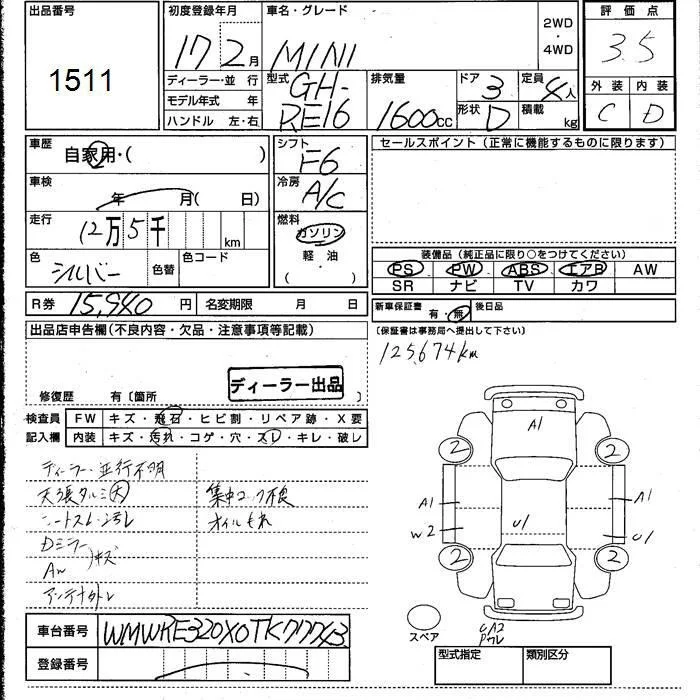 出品番号 初度登録年月 車名・グレード 2WD・4WD 評価点
1511 17 2月 MINI 3.5
ディーラー・並行 型式 排気量 ドア 定員 外装 内装
モデル年式 年 GH- 3 4人 C D
ハンドル 左・右 RE16 1600cc 形状 D 積載 kg
車歴 シフト セールスポイント (正常に機能するものに限ります)
自家用・( ) F6
車検 冷房
年 月( 日) A/C
走行 燃料
12万5千 km ガソリン
色 色コード 軽・油 装備品 (純正品に限り○をつけてください)
シルバー 色替 ( ) PS PW ABS エアB AW
SR ナビ TV カワ
R券 15,940円 名変期限 月 日 新車保証書 有・無 後日品
出品店申告欄(不良内容・欠品・注意事項等記載) (保証書は事務局へ提出して下さい)
125,674km
ディーラー出品
修復歴 有〔箇所 〕
検査員 FW キズ・飛石・ヒビ割・リペア跡・X要
記入欄 内装 キズ・汚れ・コゲ・穴・スレ・キレ・破レ
A1
2 2
ディーラー・並行不明
天張タルミ大 集中ロック不良 A1 A1
シートスレ・汚レ オイルもれ W2 U1 U1
Dミラー
キズ 2 2
AW
アンテナ折レ
車台番号 WMWRE320X0TK77743
スペア
UA2
ワレ
登録番号 型式指定 類別区分